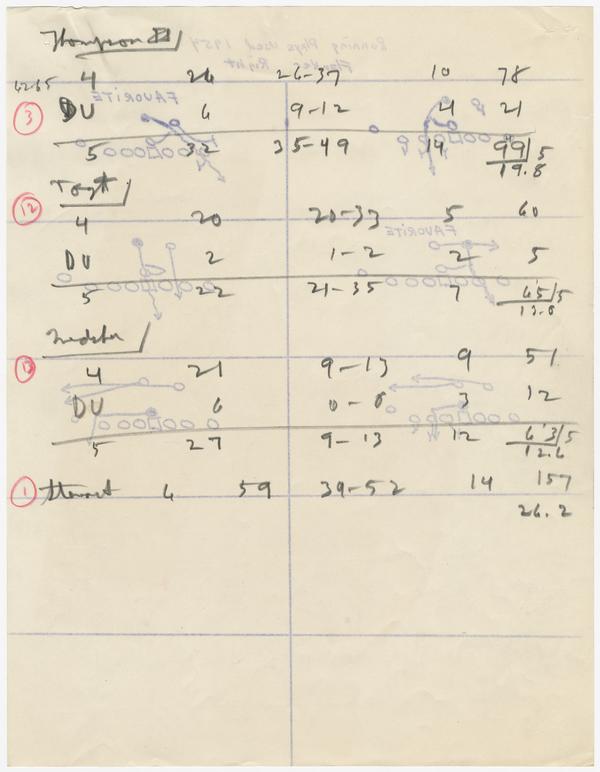 Thompson
Running Plays Used 1954
Flanker Right
4 26 26-37 10 78
FAVORITE
3 DU 6 9-12 4 21
5 32 35-49 14 99/5
19.8
12
4 20 20-33 5 60
FAVORITE
DU 2 1-2 2 5
5 22 21-35 7 65/5
13.0
13 4 21 9-13 9 51
DU 6 0-0 3 12
5 27 9-13 12 63/5
12.6
1 Stewart 6 59 39-52 14 157
26.2